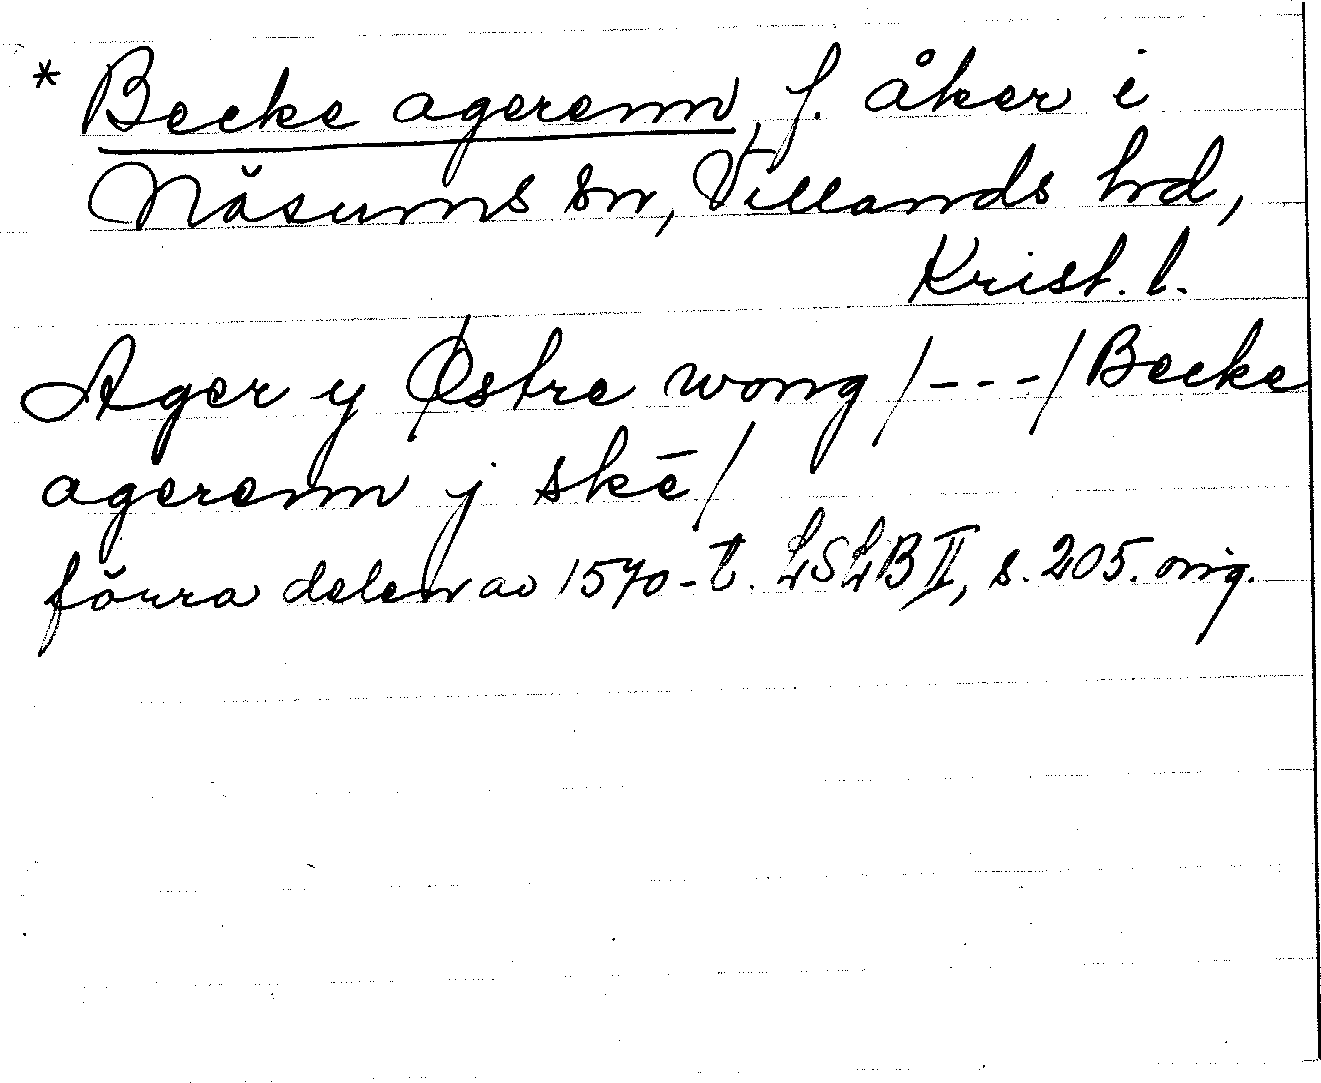 * Becke agerenn, f. åker i
Näsums sn, Villands hd,
Krist. l.
Ager y Østre wong /---/ Becke
agerenn j skē/
förra delen av 1570-t. LSLB II, s. 205. orig.